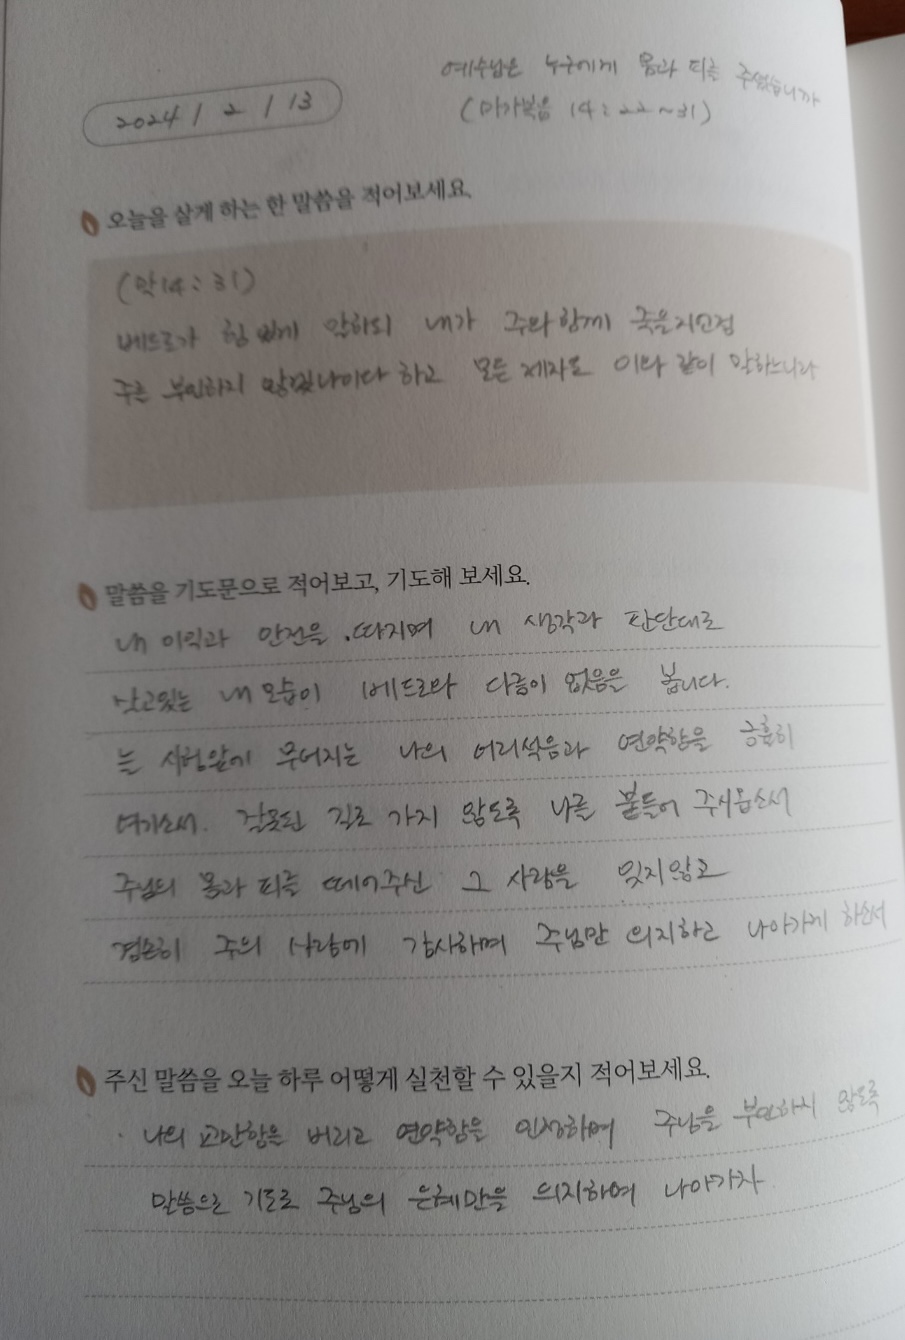 예수님은 누구에게 몸과 피를 주셨습니까
2024 / 2 / 13
(마가복음 14:22~31)
오늘을 살게 하는 한 말씀을 적어보세요.
(막14:31)
베드로가 힘있게 말하되 내가 주와 함께 죽을지언정
주를 부인하지 않겠나이다 하고 모든 제자도 이와 같이 말하느니라
말씀을 기도문으로 적어보고, 기도해 보세요.
내 이익과 안전을 따지며 내 생각과 판단대로
살고있는 내 모습이 베드로와 다름이 없음을 봅니다.
늘 시험앞에 무너지는 나의 어리석음과 연약함을 긍휼히
여기소서. 잘못된 길로 가지 않도록 나를 붙들어 주시옵소서
주님의 몸과 피를 떼어주신 그 사랑을 잊지않고
겸손히 주의 사랑에 감사하며 주님만 의지하고 나아가게 하소서
주신 말씀을 오늘 하루 어떻게 실천할 수 있을지 적어보세요.
· 나의 교만함을 버리고 연약함을 인정하며 주님을 부인하지 않도록
말씀으로 기도로 주님의 은혜만을 의지하며 나아가자